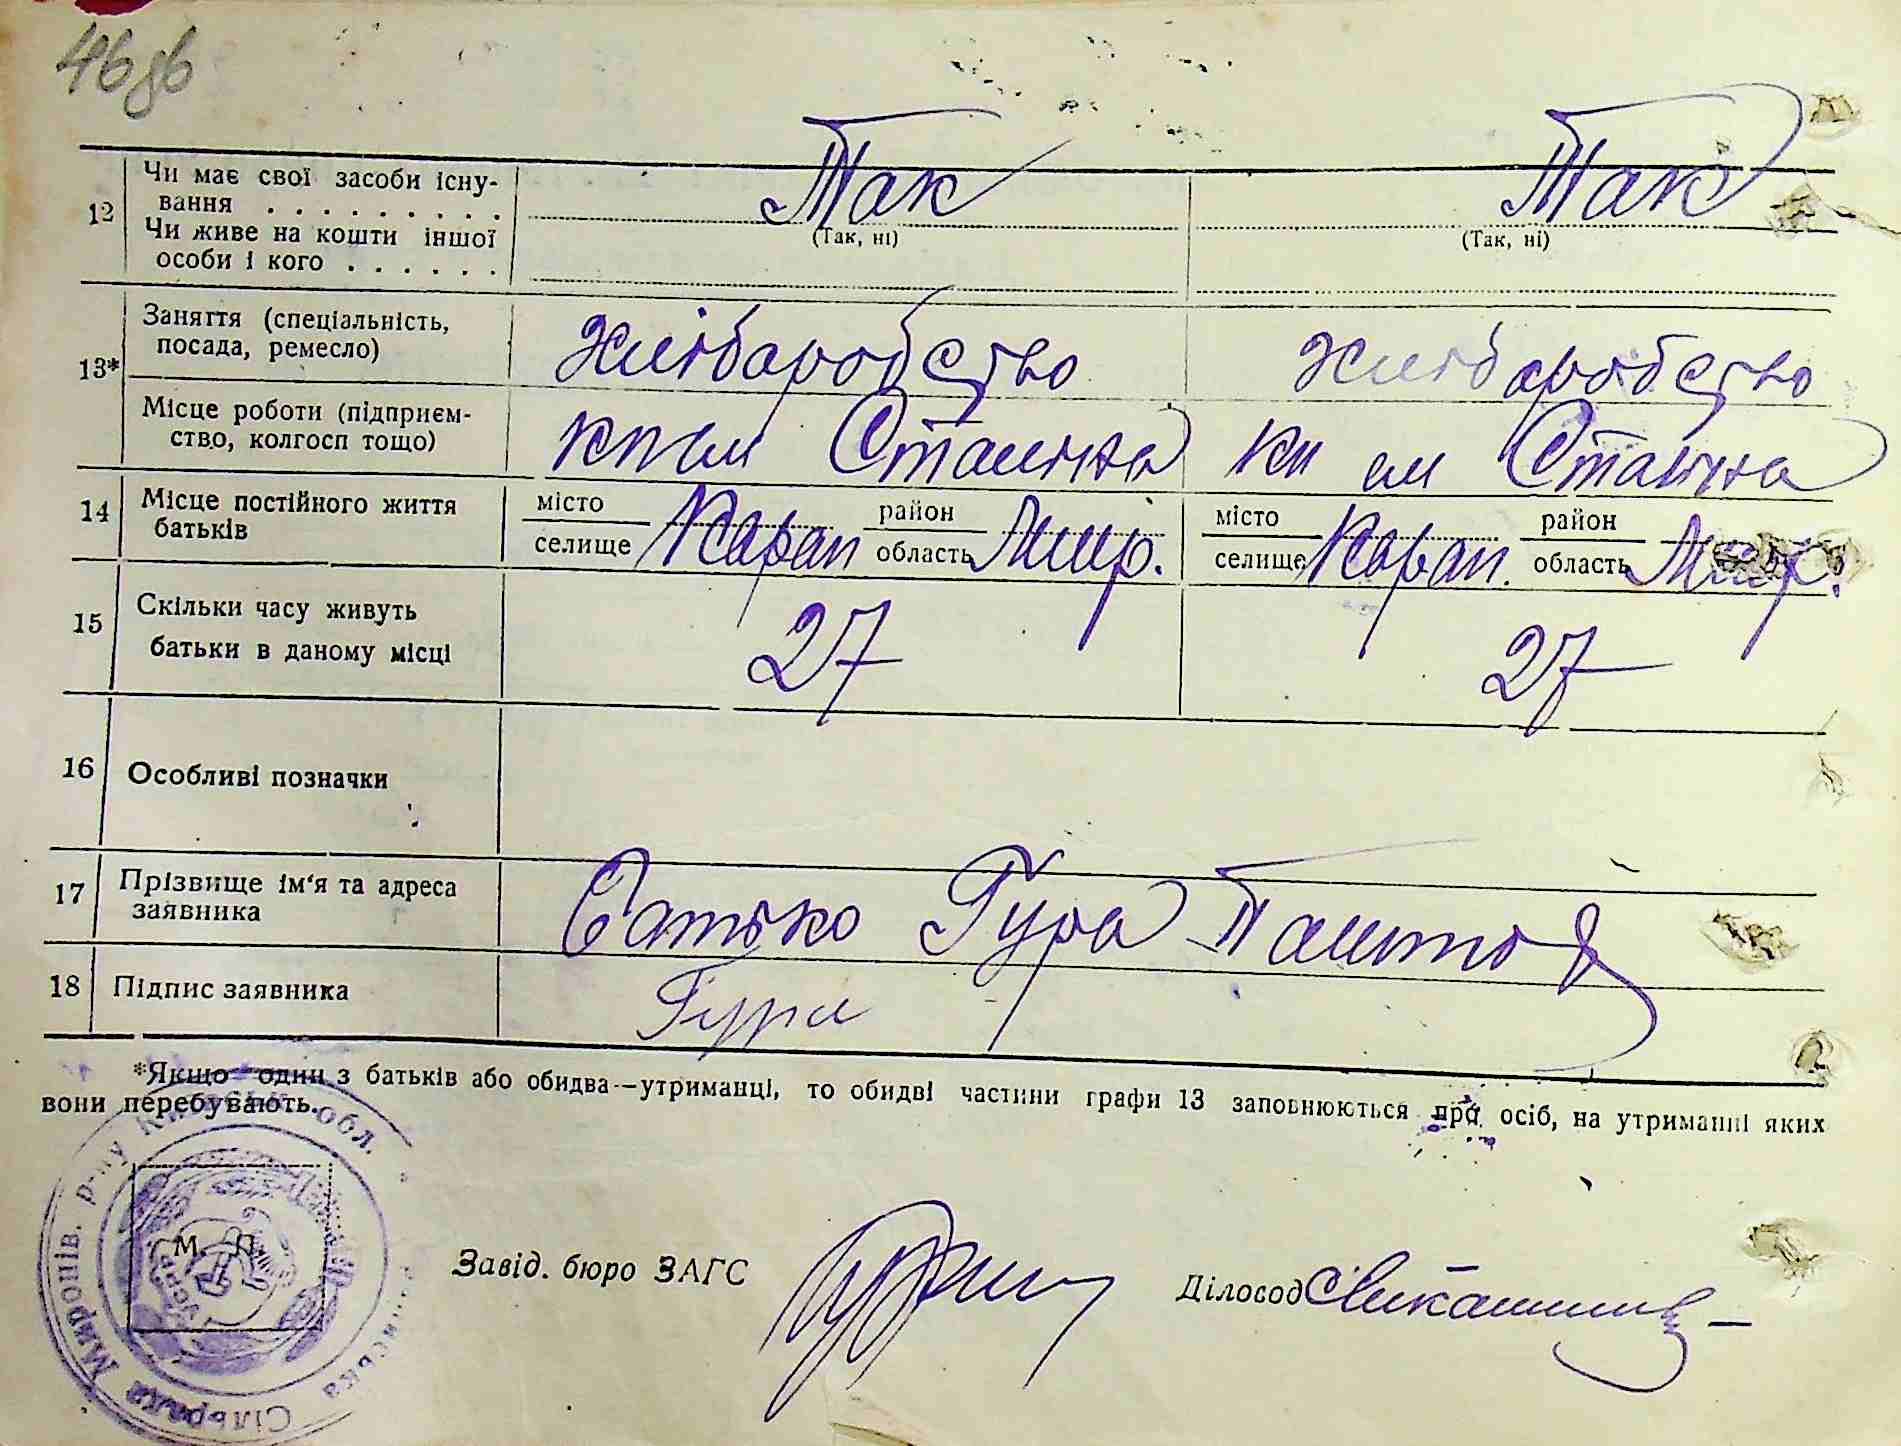 46 зв
12 Чи має свої засоби існу-
вання . . . . . . . . . Так Так
(Так, ні) (Так, ні)
Чи живе на кошти іншої
особи і кого . . . . . .
13* Заняття (спеціальність,
посада, ремесло) Хліборобство Хліборобство
Місце роботи (підприєм-
ство, колгосп тощо) Сталіна Сталіна
14 Місце постійного життя
батьків місто селище Карап район область Мир. місто селище Карап. район область Мир.
15 Скільки часу живуть
батьки в даному місці 27 27
16 Особливі позначки
17 Прізвище ім'я та адреса
заявника Батько Гура
18 Підпис заявника Гура
*Якщо один з батьків або обидва—утриманці, то обидві частини графи 13 заповнюються про осіб, на утриманні яких
вони перебувають.
М. П.
Завід. бюро ЗАГС
Діловод
Сільрада Миронів. р-ну обл.
УСРР